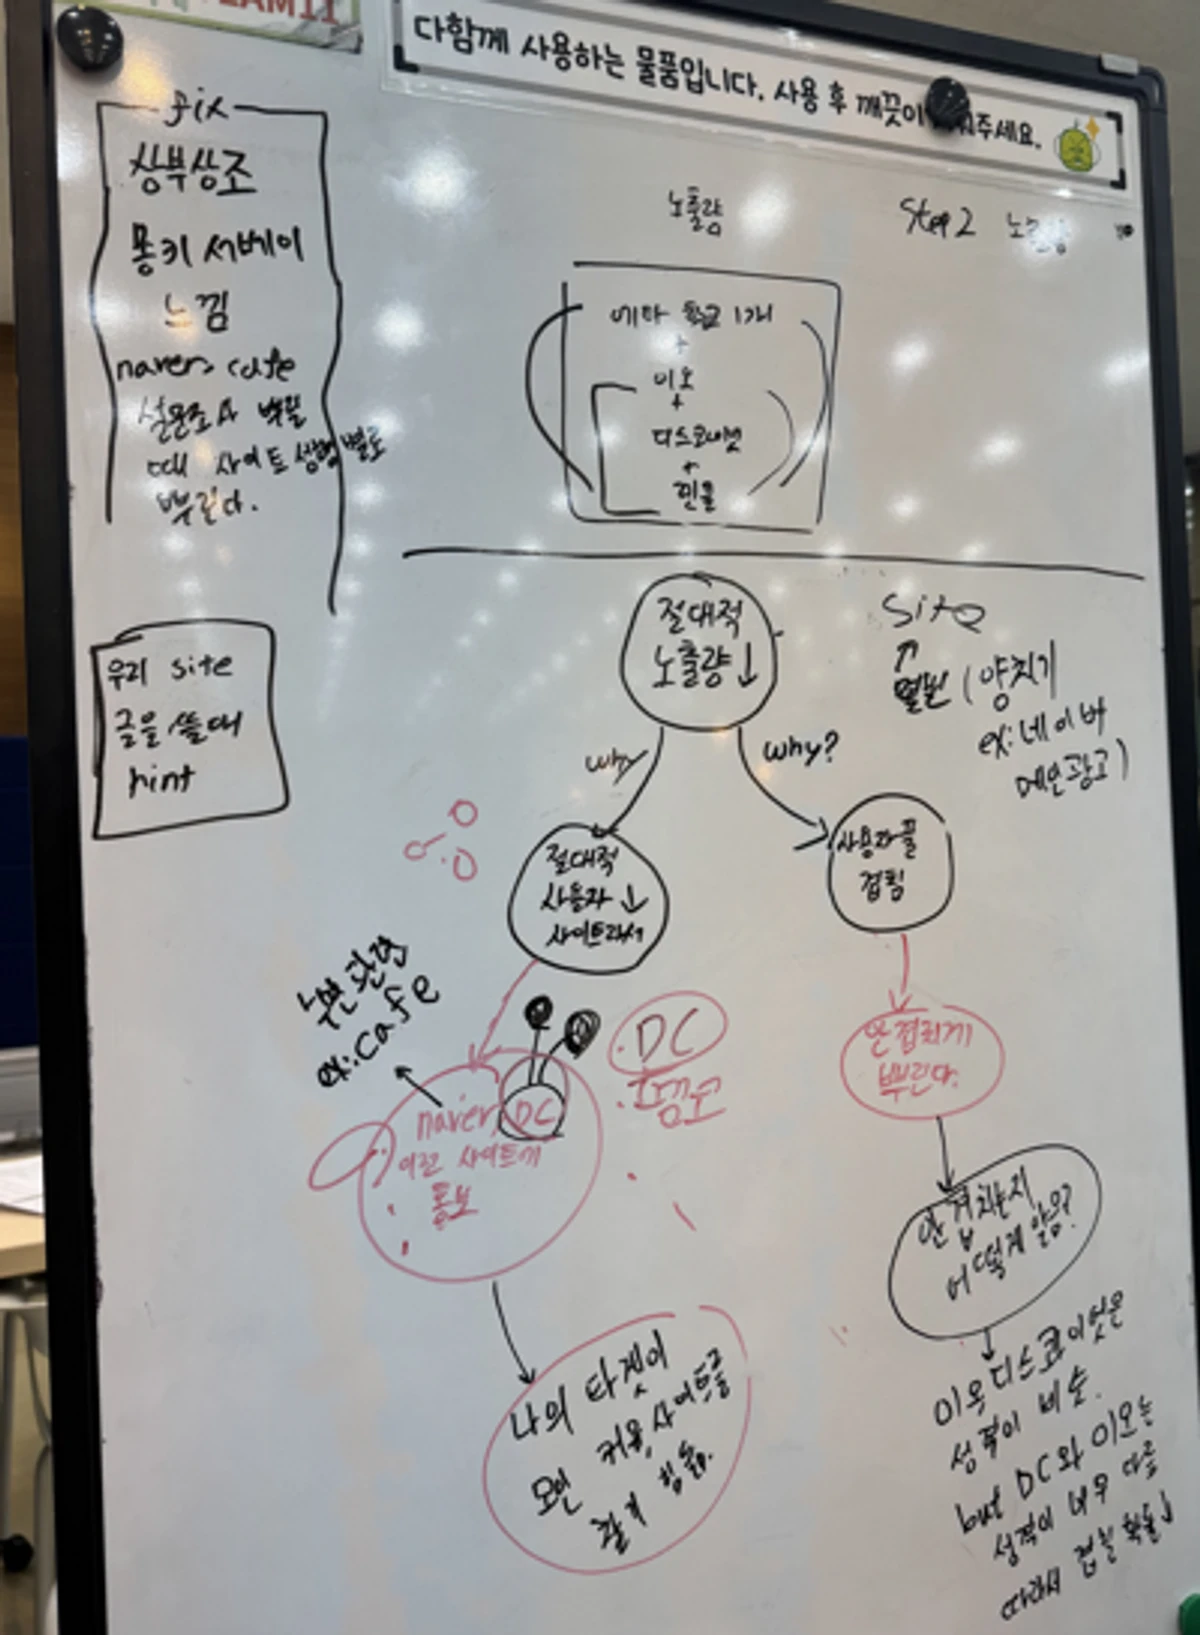 TEAM11
다함께 사용하는 물품입니다. 사용 후 깨끗이 주세요.
fix
상부상조
몽키 서베이
느낌
naver cafe
설문조사 뿌릴
때 사이트 성향별로
뿌린다.
노출량
Step 2 노출량
에타 홍보 1개
+
이오
+
디스코네이션
+
우리 site
글을 쓸 때
hint
절대적
노출량↓
why
why?
Site
↑
(양치기
ex: 네이버
메인광고)
절대적
사용자↓
사이트라서
사용자풀
겹침
누변
ex: cafe
naver, DC
이런 사이트에
홍보
DC
안 겹치게
뿌린다.
안 겹치는지
어떻게 알음?
나의 타겟이
모인 커뮤, 사이트를
찾기 힘듦.
이오 디스코이션은
성격이 비슷.
but DC와 이오는
성격이 너무 다름
따라서 겹칠 확률↓